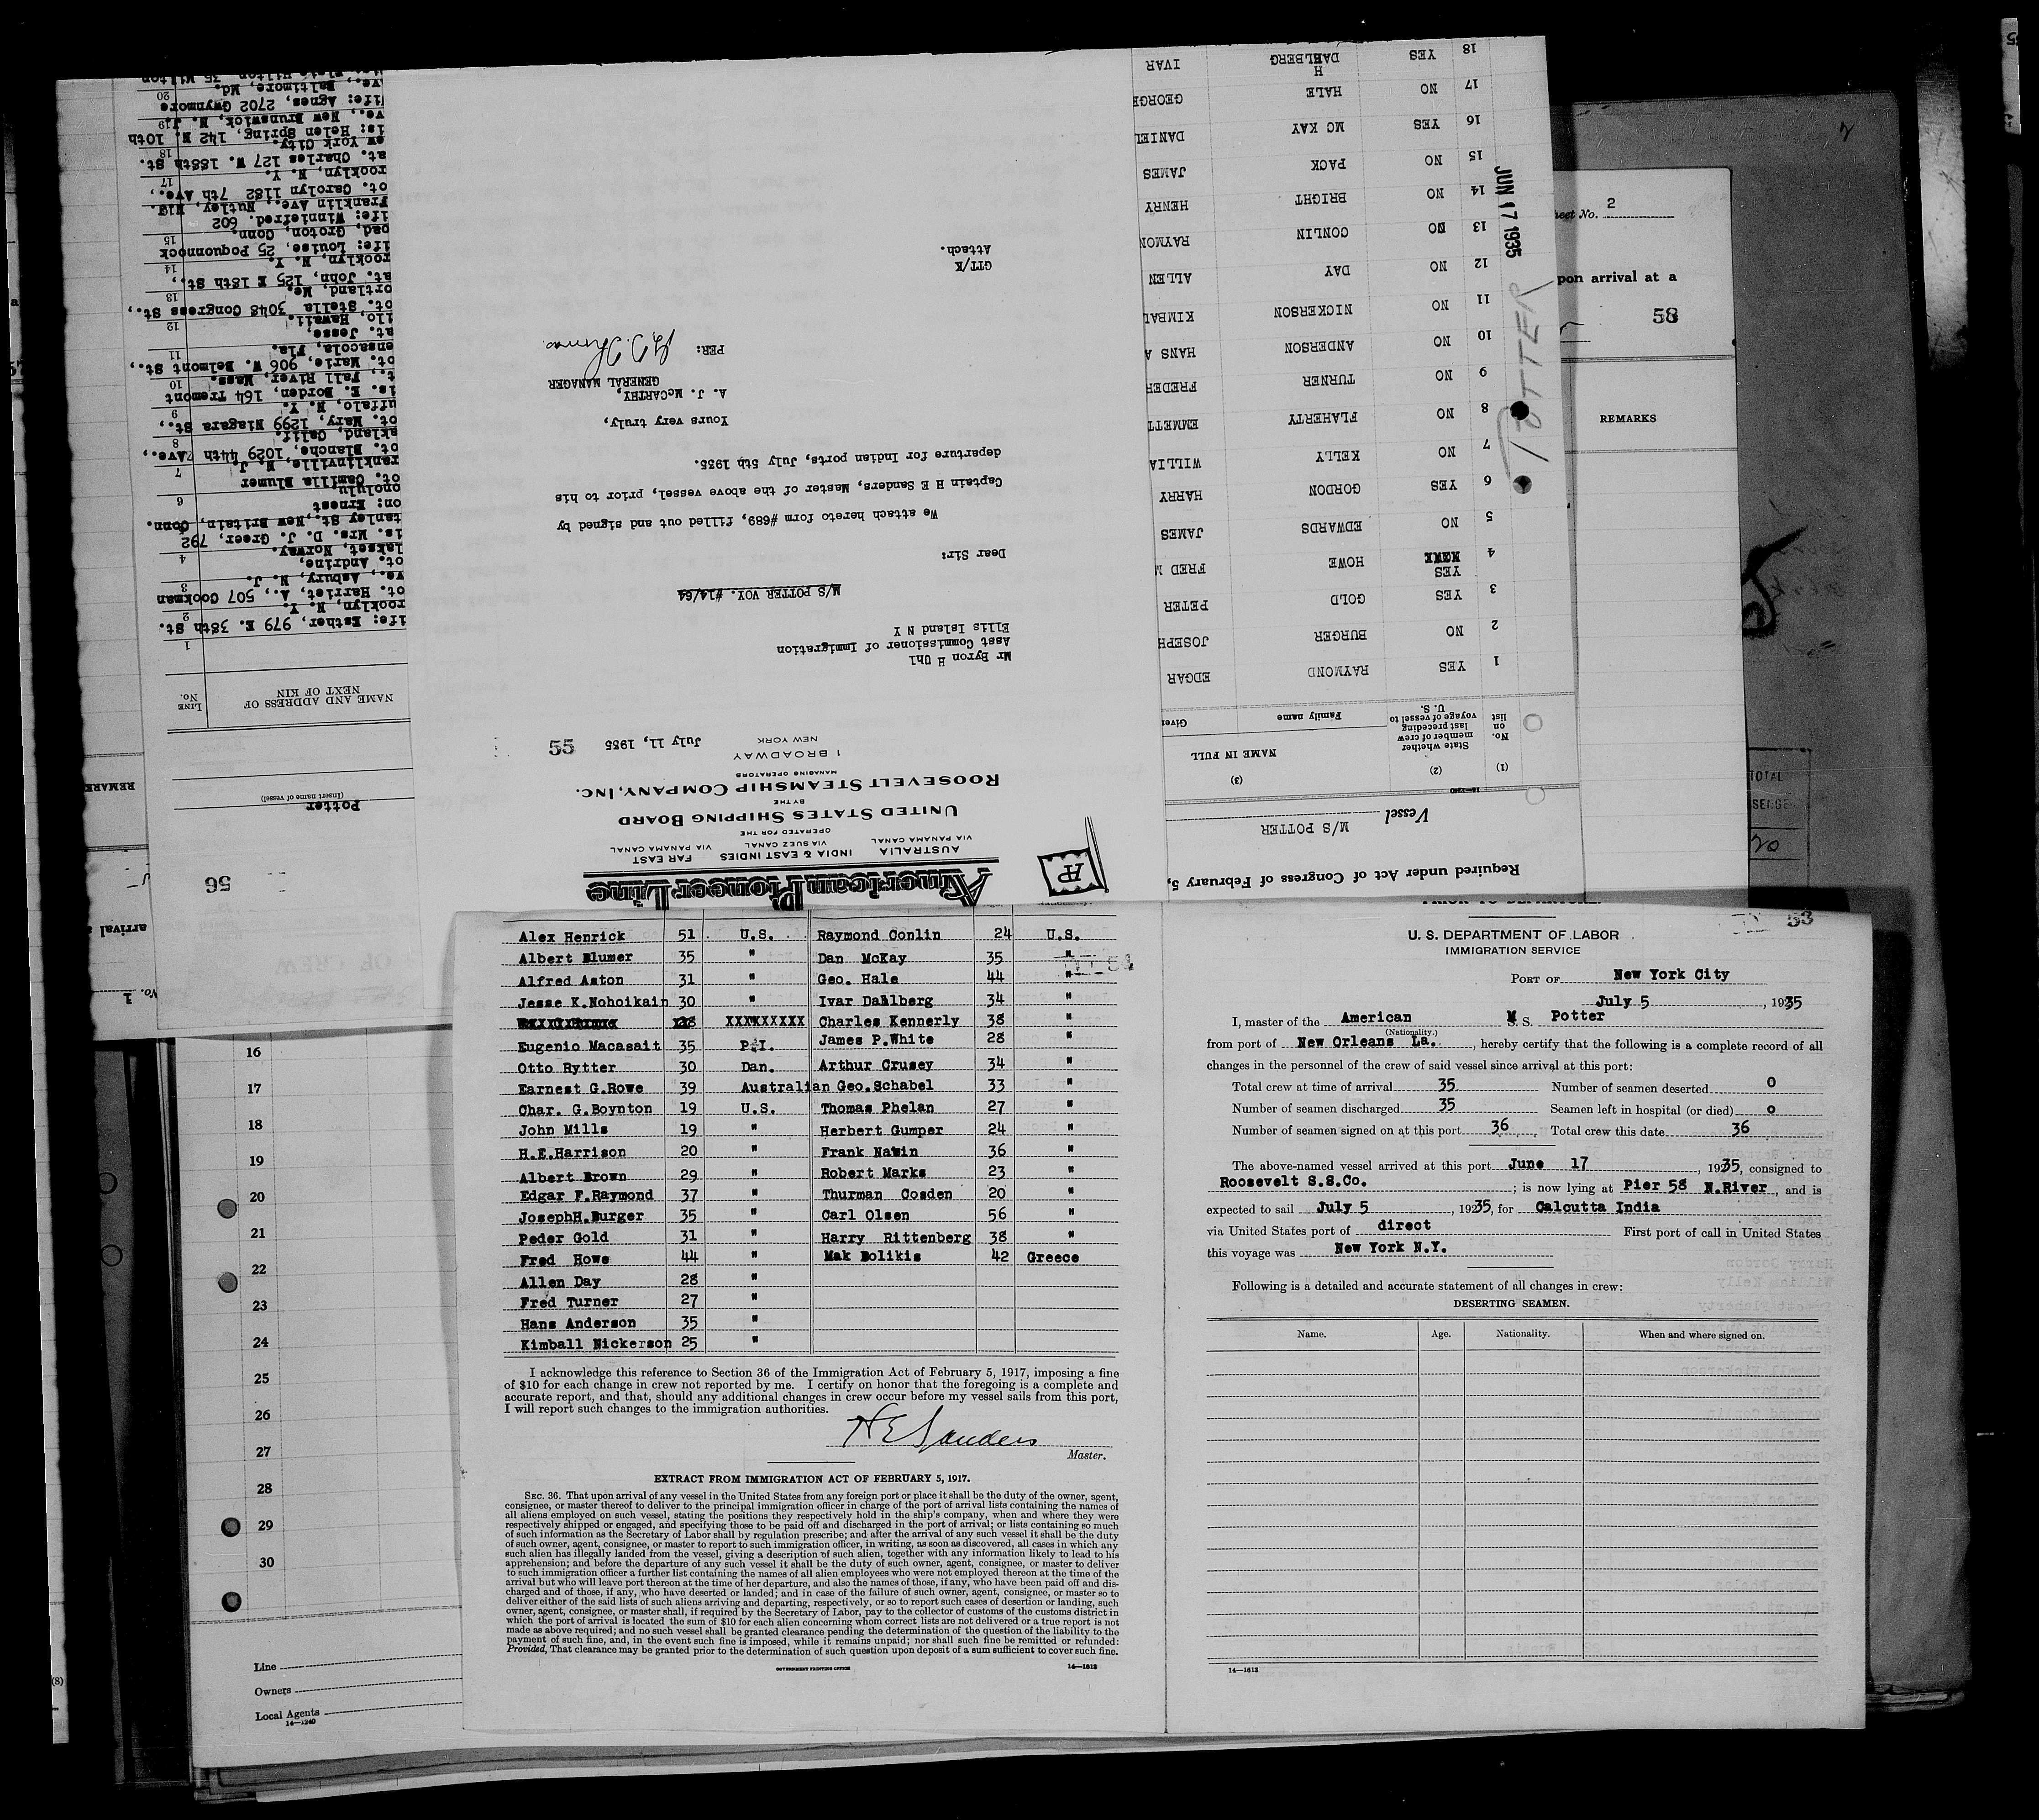 American Pioneer Line
AUSTRALIA INDIA & EAST INDIES FAR EAST
VIA PANAMA CANAL VIA SUEZ CANAL VIA PANAMA CANAL
OPERATED FOR THE
UNITED STATES SHIPPING BOARD
BY THE
ROOSEVELT STEAMSHIP COMPANY, INC.
MANAGING OPERATORS
1 BROADWAY
NEW YORK
July 11, 1935
55
Mr Byron H Uhl
Asst Commissioner of Immigration
Ellis Island N Y
M/S POTTER VOY. #14/64
Dear Sir:
We attach hereto form #689, filled out and signed by
Captain H E Sanders, Master of the above vessel, prior to his
departure for Indian ports, July 5th 1935.
Yours very truly,
A. J. McCARTHY,
GENERAL MANAGER
PER:
GTT/K
Attach.
Required under Act of Congress of February 5,
Vessel M/S POTTER
16-1240
(1) (2) (3)
No. on list State whether member of crew last preceding voyage of vessel to U. S. NAME IN FULL
Family name Given
1 YES RAYMOND EDGAR
2 NO BURGER JOSEPH
3 YES GOLD PETER
4 YES HOWE FRED M
5 NO EDWARDS JAMES
6 YES GORDON HARRY
7 NO KELLY WILLIA
8 NO FLAHERTY EMMETT
9 NO TURNER FREDER
10 NO ANDERSON HANS A
11 NO NICKERSON KIMBAL
12 NO DAY ALLEN
13 NO CONLIN RAYMON
14 NO BRIGHT HENRY
15 NO PACK JAMES
16 YES MC KAY DANIEL
17 NO HALE GEORGE
18 YES DAHLBERG IVAR
JUN 17 1935
POTTER
56
Potter
(Insert name of vessel)
LINE No. NAME AND ADDRESS OF NEXT OF KIN
1 ife: Esther, 979 E. 38th St.
rooklyn, N. Y.
2 ot. Harriet, A., 507 Cookman
ve., Asbury, N. J.
3 ot. Andrine,
lakset, Norway.
4 is. Mrs. D. J. Greer, 792
tanley St., New Britain, Conn.
on: Ernest
onolulu
6 ot. Camilla Blumer
ranklinville, N. J.
7 ot. Blanche, 1029 44th Ave.,
akland, Calif.
8 ot. Mary, 1299 Niagara St.,
uffalo, N. Y.
9 is. E. Borden, 164 Tremont
t., Fall River, Mass.
10 ot. Marie, 906 W. Belmont St.,
ensacola, Fla.
11 at. Jesse,
ilo, Hawaii.
12 ot. Stella 3048 Congress St.,
ortland, Me.
13 at. John, 125 E 18th St.,
rooklyn, N. Y.
14 ife: Louise, 25 Poquonnock
oad, Groton, Conn.
15 ife: Winniefred. 602
Franklin Ave., Nutley, N.J.
ot. Carolyn 1182 7th Ave.,
rooklyn, N. Y.
17 at. Charles 127 W. 188th St.
ew York City.
18 is: Helen Spring, 142 N. 10th
ve., New Brunswick, N. J.
19 ife: Agnes, 2702 Gwynmore
ve., Baltimore, Md.
20
REMARK
arrival a
No. 1
heet No. 2
pon arrival at a
58
REMARKS
TOTAL
20
Alex Henrick 51 U.S. Raymond Conlin 24 U.S.
Albert Blumer 35 " Dan McKay 35 "
Alfred Aston 31 " Geo. Hale 44 "
Jesse K.Nohoikain 30 " Ivar Dahlberg 34 "
XXXXXXXXX Charles Kennerly 38 "
Eugenio Macasait 35 P.I. James P.White 28 "
Otto Rytter 30 Dan. Arthur Crusey 34 "
Earnest G.Rowe 39 Australian Geo.Schabel 33 "
Char. G.Boynton 19 U.S. Thomas Phelan 27 "
John Mills 19 " Herbert Gumper 24 "
H.E.Harrison 20 " Frank Nawin 36 "
Albert Brown 29 " Robert Marks 23 "
Edgar F.Raymond 37 " Thurman Cosden 20 "
JosephH.Burger 35 " Carl Olsen 56 "
Peder Gold 31 " Harry Rittenberg 38 "
Fred Howe 44 " Mak Bolikis 42 Greece
Allen Day 28 "
Fred Turner 27 "
Hans Anderson 35 "
Kimball Nickerson 25 "
I acknowledge this reference to Section 36 of the Immigration Act of February 5, 1917, imposing a fine
of $10 for each change in crew not reported by me. I certify on honor that the foregoing is a complete and
accurate report, and that, should any additional changes in crew occur before my vessel sails from this port,
I will report such changes to the immigration authorities.
H E Sanders
Master.
EXTRACT FROM IMMIGRATION ACT OF FEBRUARY 5, 1917.
SEC. 36. That upon arrival of any vessel in the United States from any foreign port or place it shall be the duty of the owner, agent,
consignee, or master thereof to deliver to the principal immigration officer in charge of the port of arrival lists containing the names of
all aliens employed on such vessel, stating the positions they respectively hold in the ship's company, when and where they were
respectively shipped or engaged, and specifying those to be paid off and discharged in the port of arrival; or lists containing so much
of such information as the Secretary of Labor shall by regulation prescribe; and after the arrival of any such vessel it shall be the duty
of such owner, agent, consignee, or master to report to such immigration officer, in writing, as soon as discovered, all cases in which any
such alien has illegally landed from the vessel, giving a description of such alien, together with any information likely to lead to his
apprehension; and before the departure of any such vessel it shall be the duty of such owner, agent, consignee, or master to deliver
to such immigration officer a further list containing the names of all alien employees who were not employed thereon at the time of the
arrival but who will leave port thereon at the time of her departure, and also the names of those, if any, who have been paid off and dis-
charged and of those, if any, who have deserted or landed; and in case of the failure of such owner, agent, consignee, or master so to
deliver either of the said lists of such aliens arriving and departing, respectively, or so to report such cases of desertion or landing, such
owner, agent, consignee, or master shall, if required by the Secretary of Labor, pay to the collector of customs of the customs district in
which the port of arrival is located the sum of $10 for each alien concerning whom correct lists are not delivered or a true report is not
made as above required; and no such vessel shall be granted clearance pending the determination of the question of the liability to the
payment of such fine, and, in the event such fine is imposed, while it remains unpaid; nor shall such fine be remitted or refunded:
Provided, That clearance may be granted prior to the determination of such question upon deposit of a sum sufficient to cover such fine.
GOVERNMENT PRINTING OFFICE 14-1613
53
U. S. DEPARTMENT OF LABOR
IMMIGRATION SERVICE
PORT OF New York City
July 5, 1935
I, master of the American M S. Potter
(Nationality.)
from port of New Orleans La., hereby certify that the following is a complete record of all
changes in the personnel of the crew of said vessel since arrival at this port:
Total crew at time of arrival 35 Number of seamen deserted 0
Number of seamen discharged 35 Seamen left in hospital (or died) 0
Number of seamen signed on at this port 36 Total crew this date 36
The above-named vessel arrived at this port June 17, 1935, consigned to
Roosevelt S.S.Co.; is now lying at Pier 58 N.River, and is
expected to sail July 5, 1935, for Calcutta India
via United States port of direct First port of call in United States
this voyage was New York N.Y.
Following is a detailed and accurate statement of all changes in crew:
DESERTING SEAMEN.
Name. Age. Nationality. When and where signed on.
14-1613
16
17
18
19
20
21
22
23
24
25
26
27
28
29
30
Line
Owners
Local Agents
14-1240
(8)